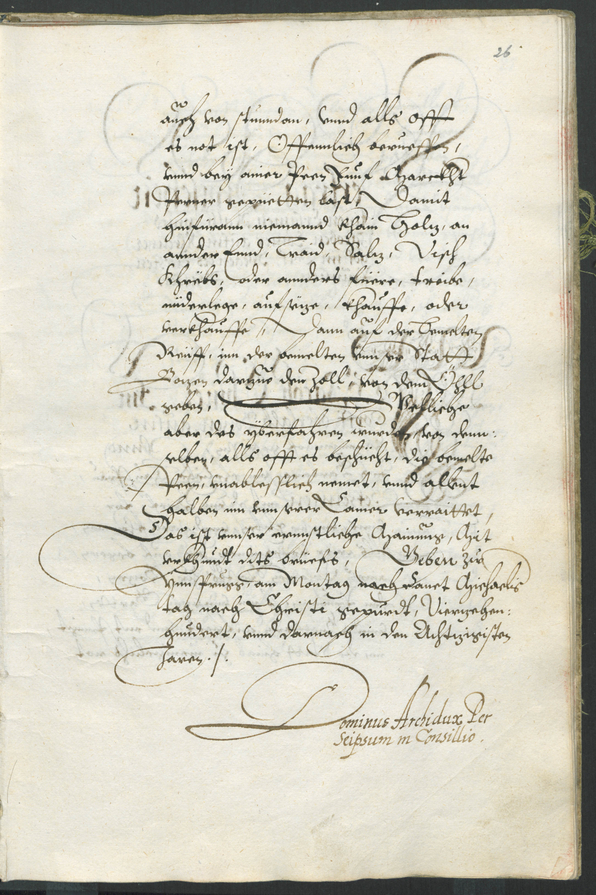 26
auch von stunndan, vnnd alls offt
es not ist, Offennlich berueffen,
vnnd bey ainer Peen Fünf Marckht
Perner gepietten last, Damit
hinfüran niemannd khain Holtz, an
annder ennd, Traid, Saltz, Visch
Khrebs, oder annders füere, treibe,
niderlege, aufsetze, khauffe, oder
verkhauffe, Dann auf der bemelten
Reiff, inn der bemelten vnnser Statt
Botzen darzue den Zoll, von dem Öll
geben, Welliche
aber das yberfahren wurden von denn:
selben, alls offt es beschiecht, die bemelte
Peen, vnablesslich nemet, vnnd allent
halben inn vnnserer Camer verraittet,
Das ist vnnser ernnstliche Mainung, Mit
vrkhundt dits briefs, Geben zu
Ynnsprugg, am Montag nach Sanct Michaelis
tag nach Christi gepurdt, Viertzehen:
hundert, vnnd darnach in den Achtzigisten
Jaren ./.
Dominus Archidux Per
Seipsum in Consillio.